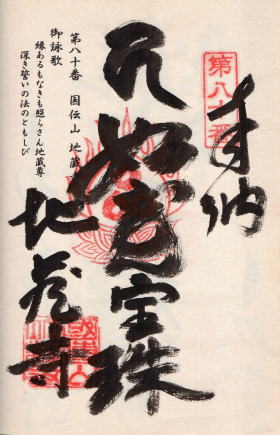 奉納
第八十番
如意宝珠
地蔵寺
第八十番 国伝山 地蔵
御詠歌
縁あるもなきも照らさん地蔵尊
深き誓いの法のともしび